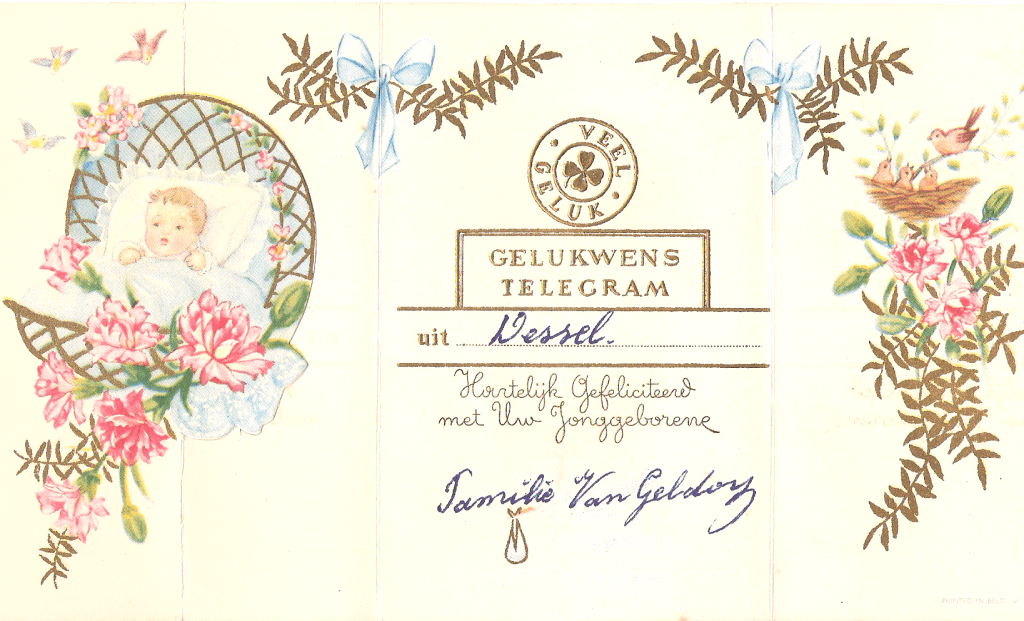 VEEL GELUK
GELUKWENS
TELEGRAM
uit Wessel.
Hartelijk Gefeliciteerd
met Uw Jonggeborene
Familie Van Geldorp
PRINTED IN BELGIUM